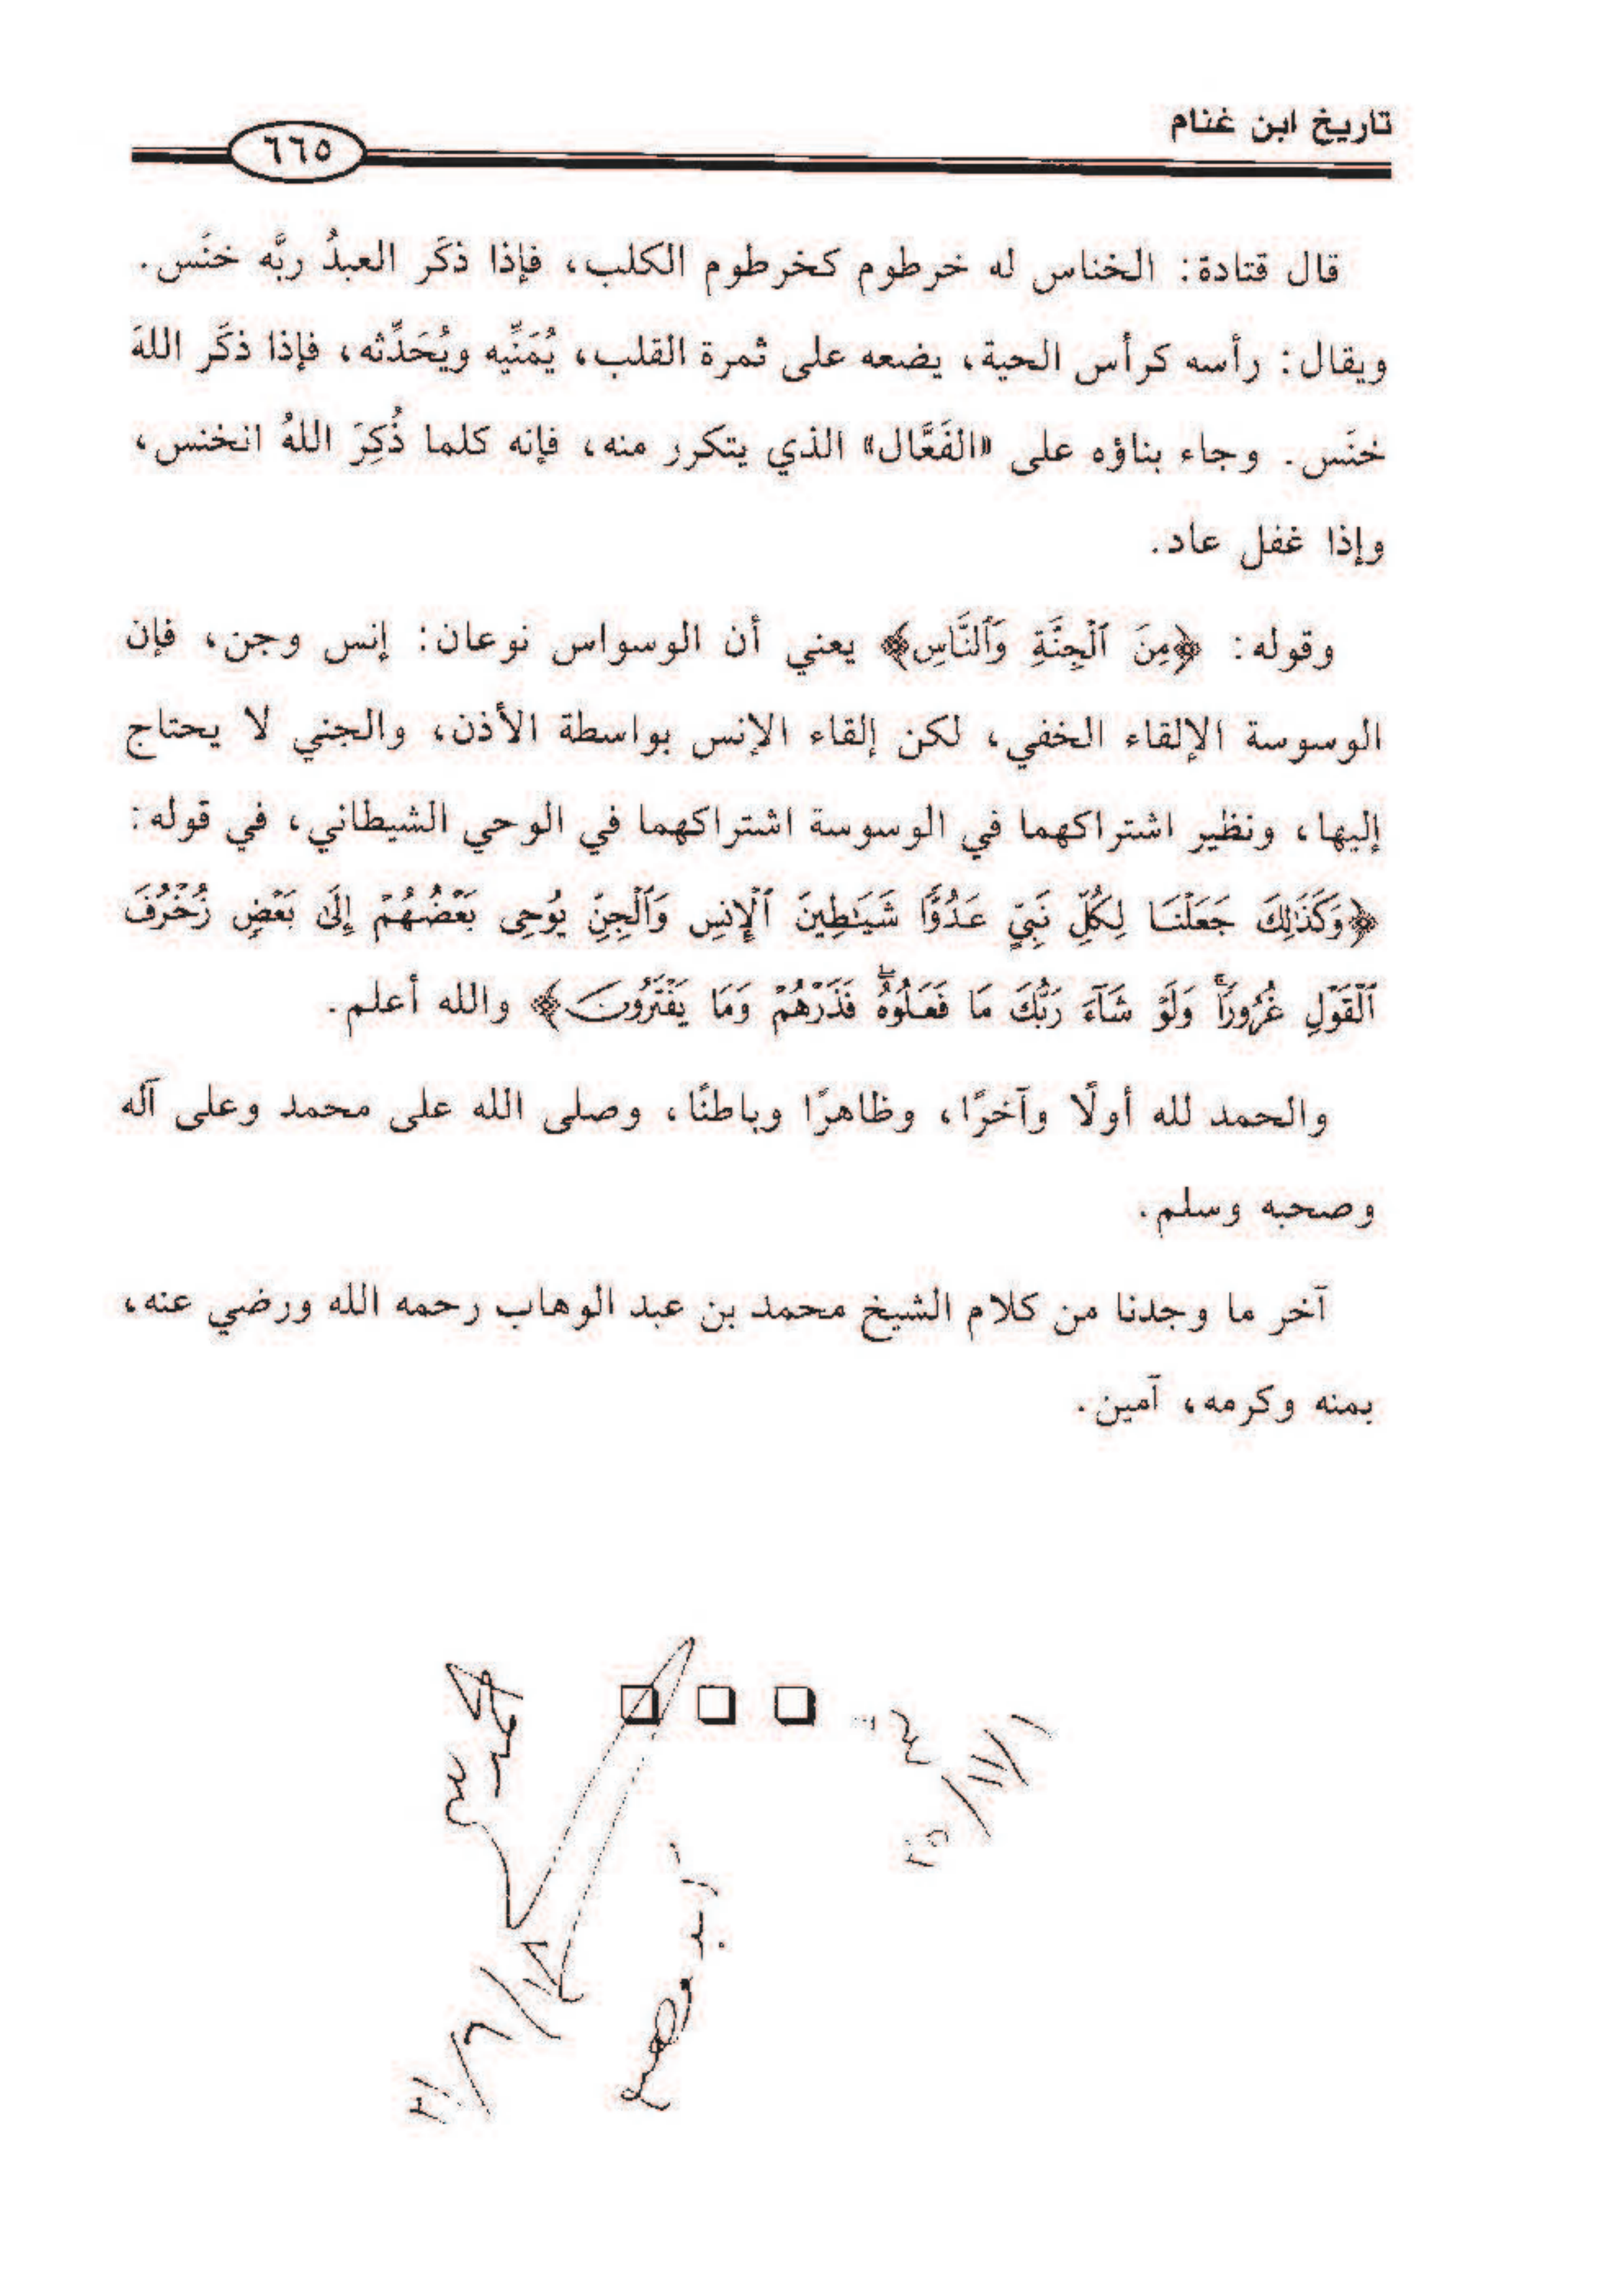 تاريخ ابن غنام
٦٦٥
قال قتادة: الخناس له خرطوم كخرطوم الكلب، فإذا ذكَر العبدُ ربَّه خنَس.
ويقال: رأسه كرأس الحية، يضعه على ثمرة القلب، يُمَنِّيه ويُحَدِّثه، فإذا ذكَر اللهَ
خنَس. وجاء بناؤه على «الفَعَّال» الذي يتكرر منه، فإنه كلما ذُكِرَ اللهُ انخنس،
وإذا غفل عاد.
وقوله: ﴿مِنَ ٱلْجِنَّةِ وَٱلنَّاسِ﴾ يعني أن الوسواس نوعان: إنس وجن، فإن
الوسوسة الإلقاء الخفي، لكن إلقاء الإنس بواسطة الأذن، والجني لا يحتاج
إليها، ونظير اشتراكهما في الوسوسة اشتراكهما في الوحي الشيطاني، في قوله:
﴿وَكَذَٰلِكَ جَعَلْنَا لِكُلِّ نَبِىٍّ عَدُوًّا شَيَٰطِينَ ٱلْإِنسِ وَٱلْجِنِّ يُوحِى بَعْضُهُمْ إِلَىٰ بَعْضٍ زُخْرُفَ
ٱلْقَوْلِ غُرُورًا ۚ وَلَوْ شَآءَ رَبُّكَ مَا فَعَلُوهُ ۖ فَذَرْهُمْ وَمَا يَفْتَرُونَ﴾ والله أعلم.
والحمد لله أولًا وآخرًا، وظاهرًا وباطنًا، وصلى الله على محمد وعلى آله
وصحبه وسلم.
آخر ما وجدنا من كلام الشيخ محمد بن عبد الوهاب رحمه الله ورضي عنه،
بمنه وكرمه، آمين.